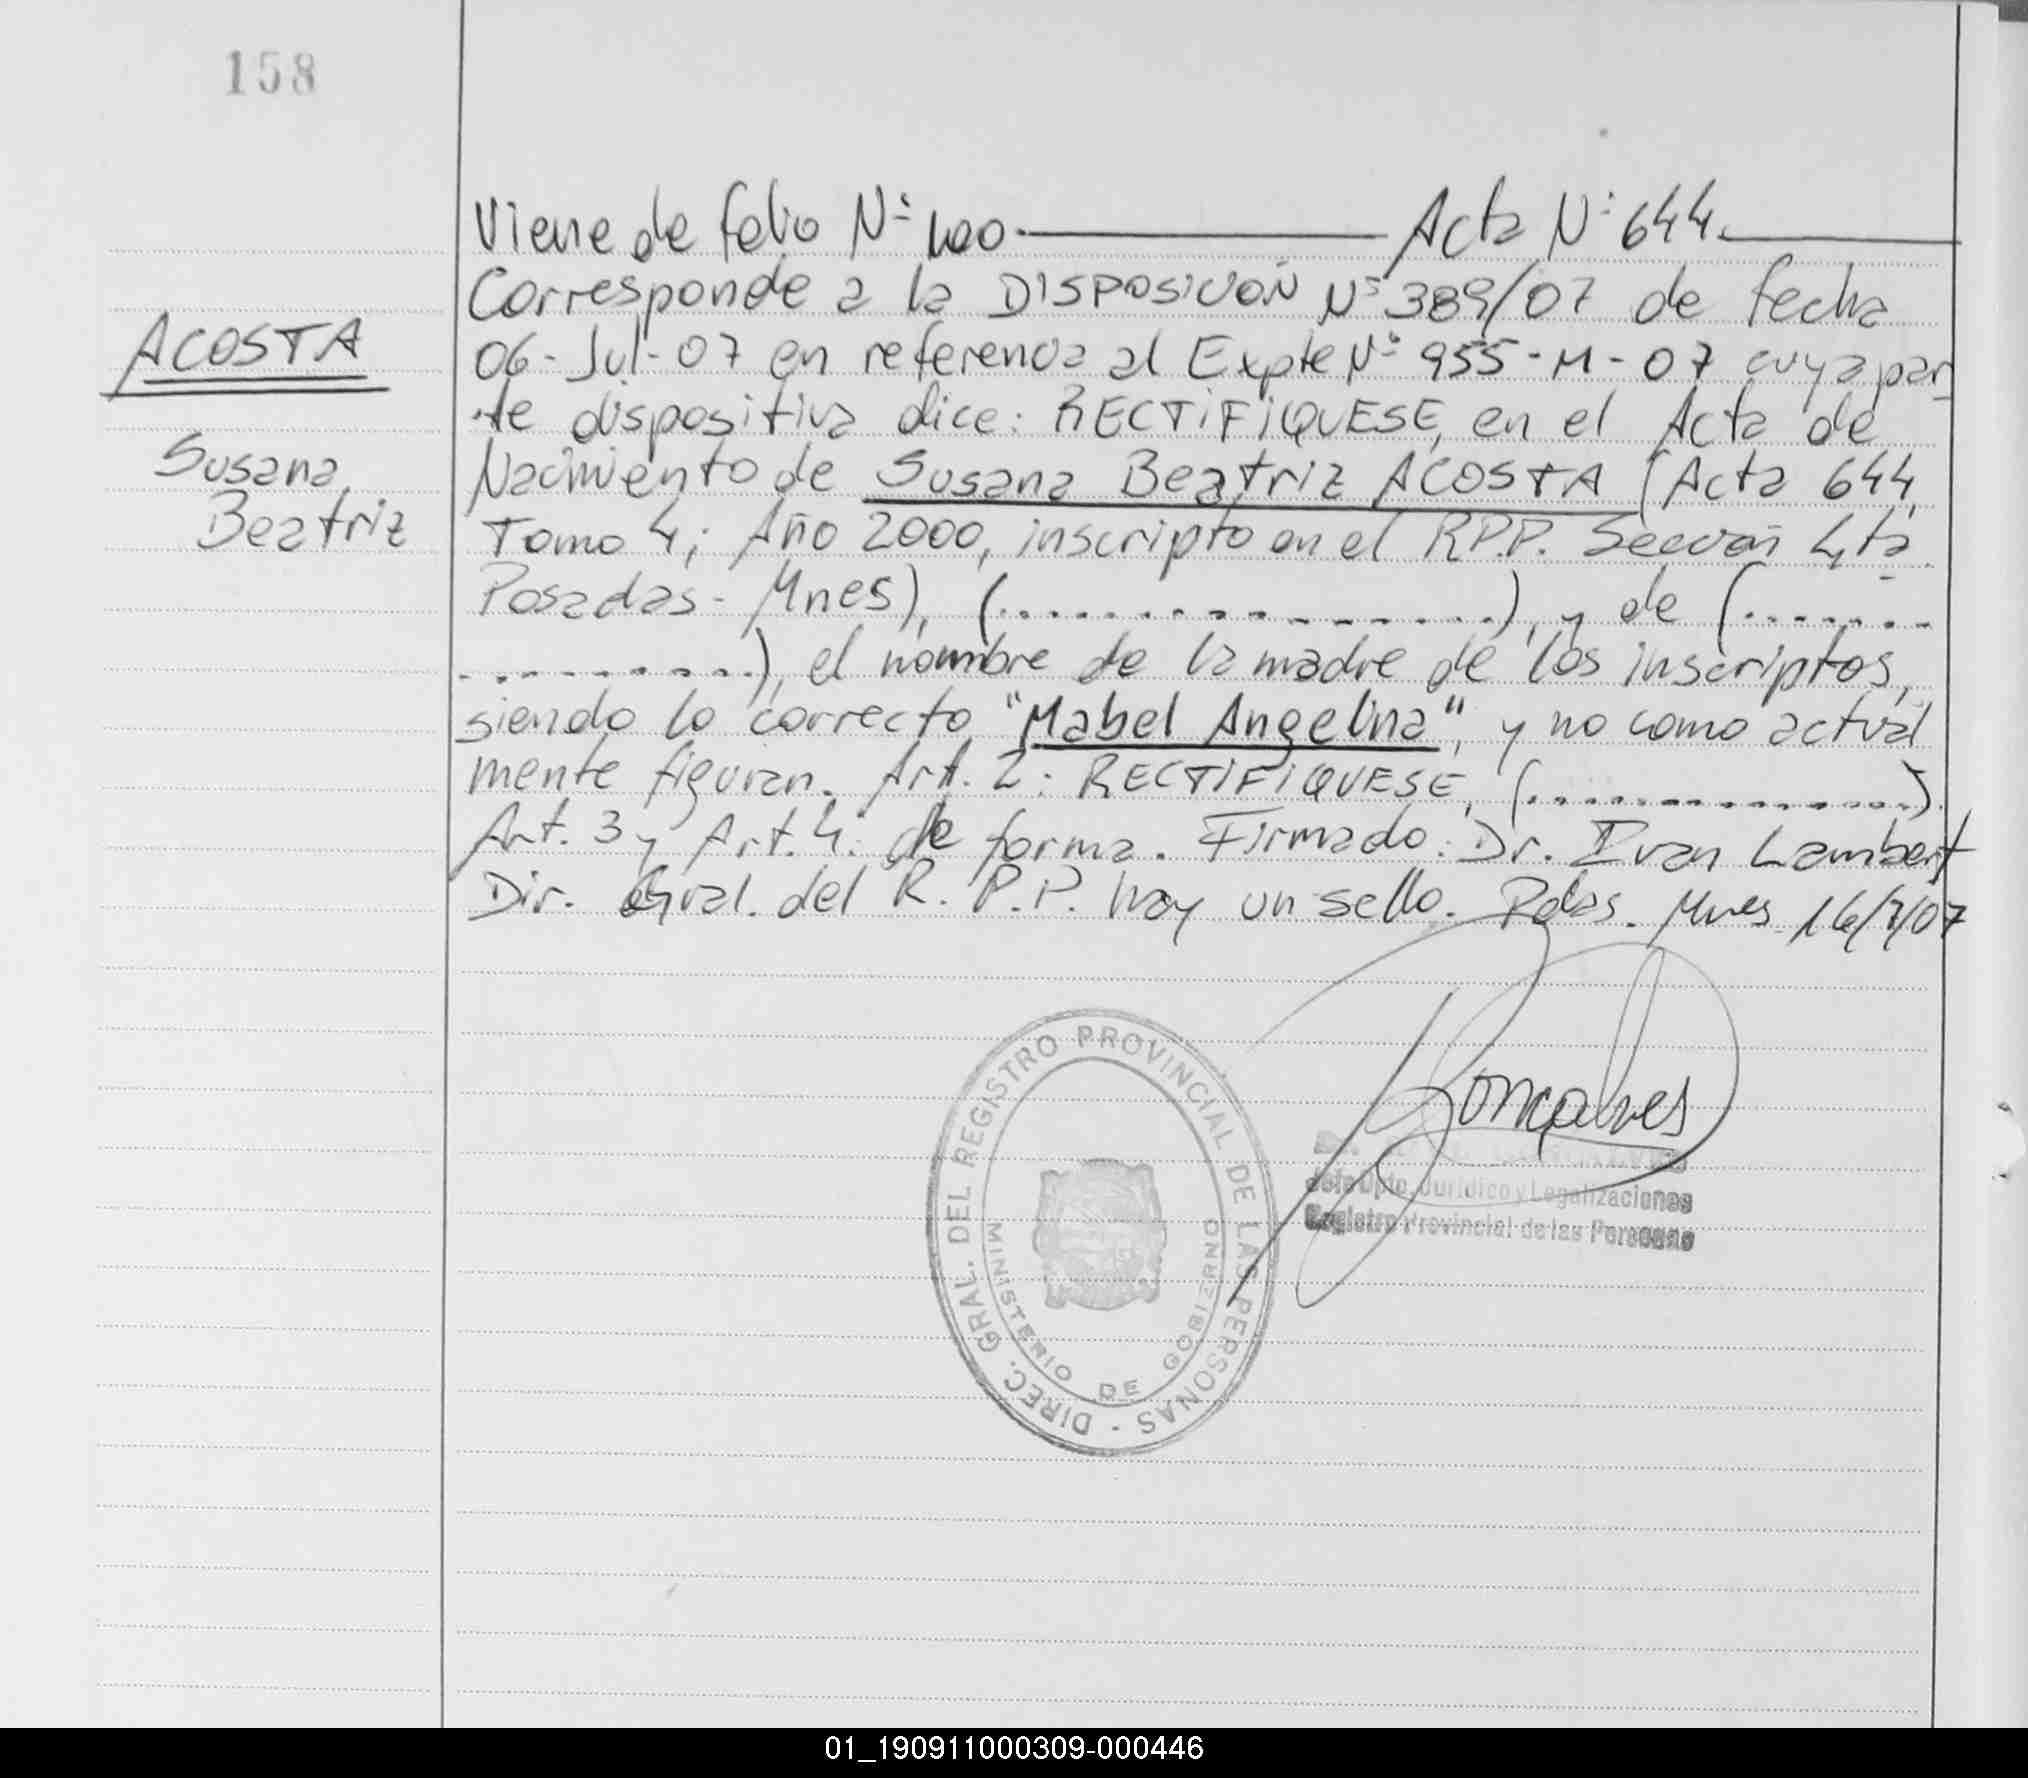 158
Viene de folio Nº 100. Acta Nº 644.
Corresponde a la DISPOSICION Nº 389/07 de fecha
ACOSTA
06-Jul-07 en referencia al Expte Nº 955-M-07 cuya par
te dispositiva dice: RECTIFIQUESE, en el Acta de
Susana
Nacimiento de Susana Beatriz ACOSTA (Acta 644,
Beatriz
Tomo 4; Año 2000, inscripto en el R.P.P. Sección 4ta
Posadas - Mnes), (................), y de (.......
..........), el nombre de la madre de los inscriptos,
siendo lo correcto "Mabel Angelina", y no como actual
mente figuran. Art. 2: RECTIFIQUESE, (...............).
Art. 3 y Art. 4: de forma. Firmado: Dr. Ivan Lambert
Dir. Gral. del R.P.P. hay un sello. Pdas. Mnes 16/7/07
Goncalves
Jefe Dpto. Jurídico y Legalizaciones
Registro Provincial de las Personas
DIREC. GRAL. DEL REGISTRO PROVINCIAL DE LAS PERSONAS -
MINISTERIO DE GOBIERNO
01_190911000309-000446